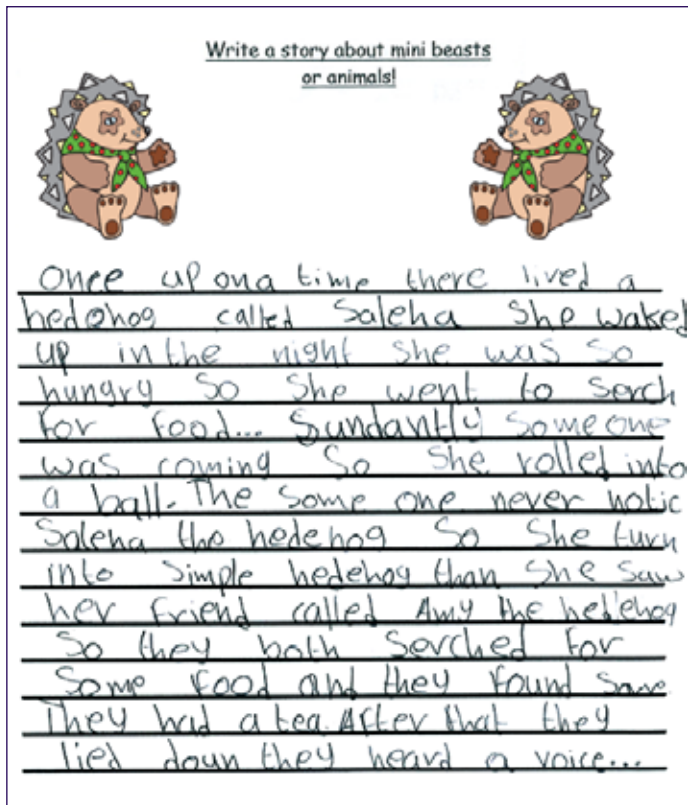 Write a story about mini beasts
or animals!
Once upona time there lived a
hedohog called Saleha She waked
up in the night she was so
hungry So She went to serch
for food... Sundantly Some one
was coming So She rolled into
a ball. The Some one never notic
Saleha the hedehog So She turn
into simple hedehog than She saw
her friend called Amy the hedehog
So they both Serched for
Some food and they found some
They had a tea. After that they
lied down they heard a voice...